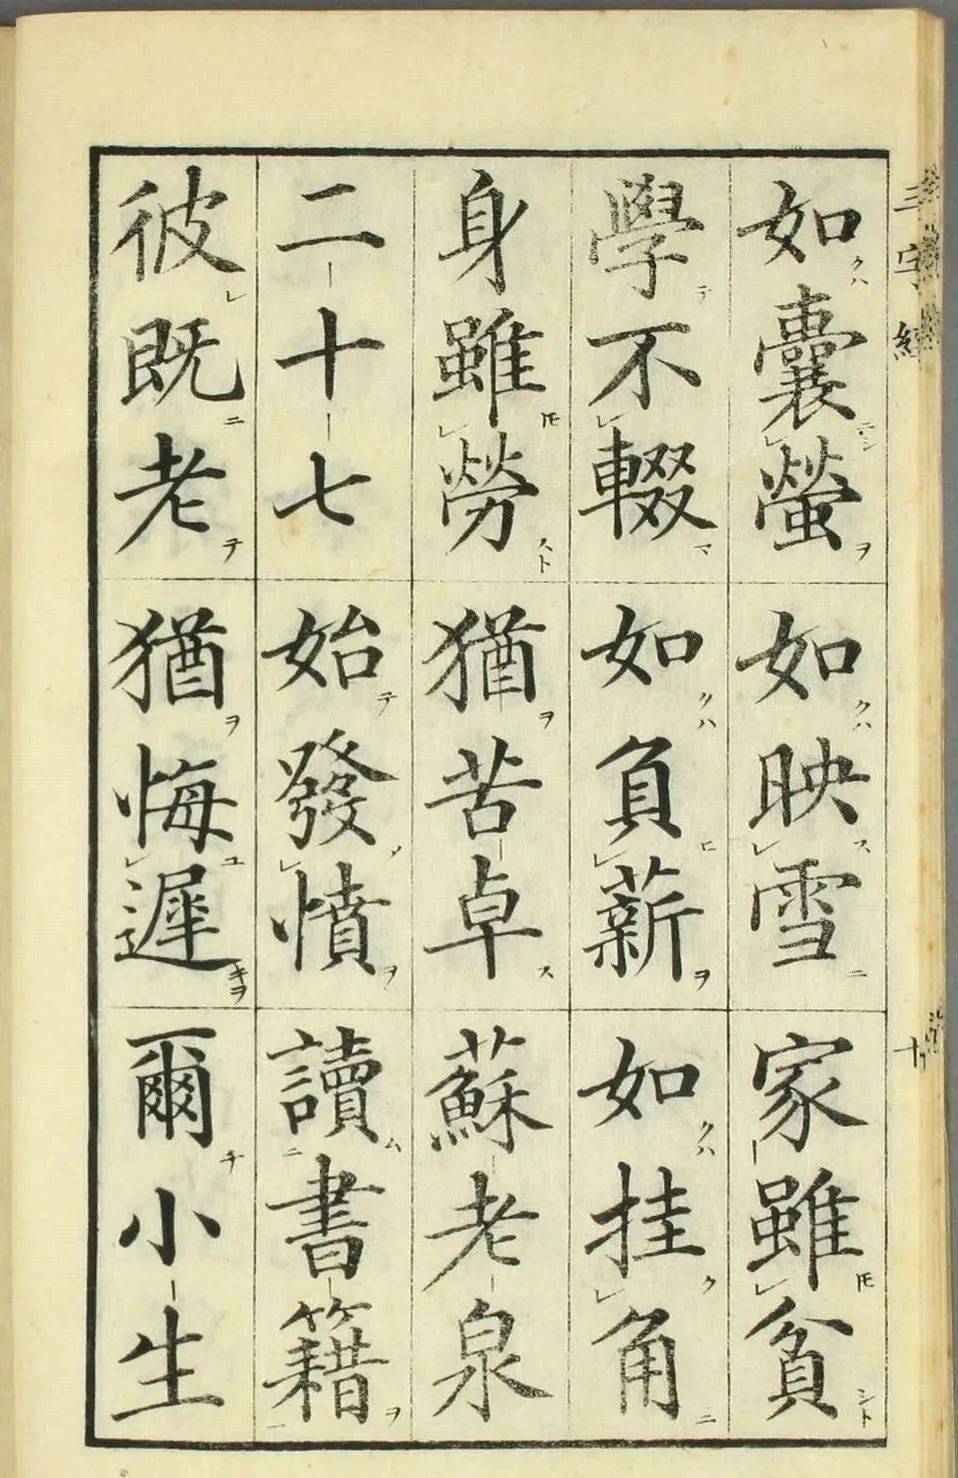 三字經
十
如囊螢如映雪家雖貧
學不輟如負薪如挂角
身雖勞猶苦卓蘇老泉
二十七始發憤讀書籍
彼既老猶悔遲爾小生